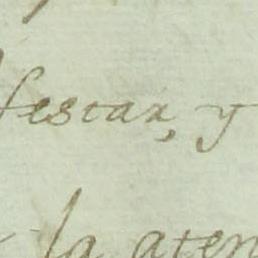 festar, y
la aten